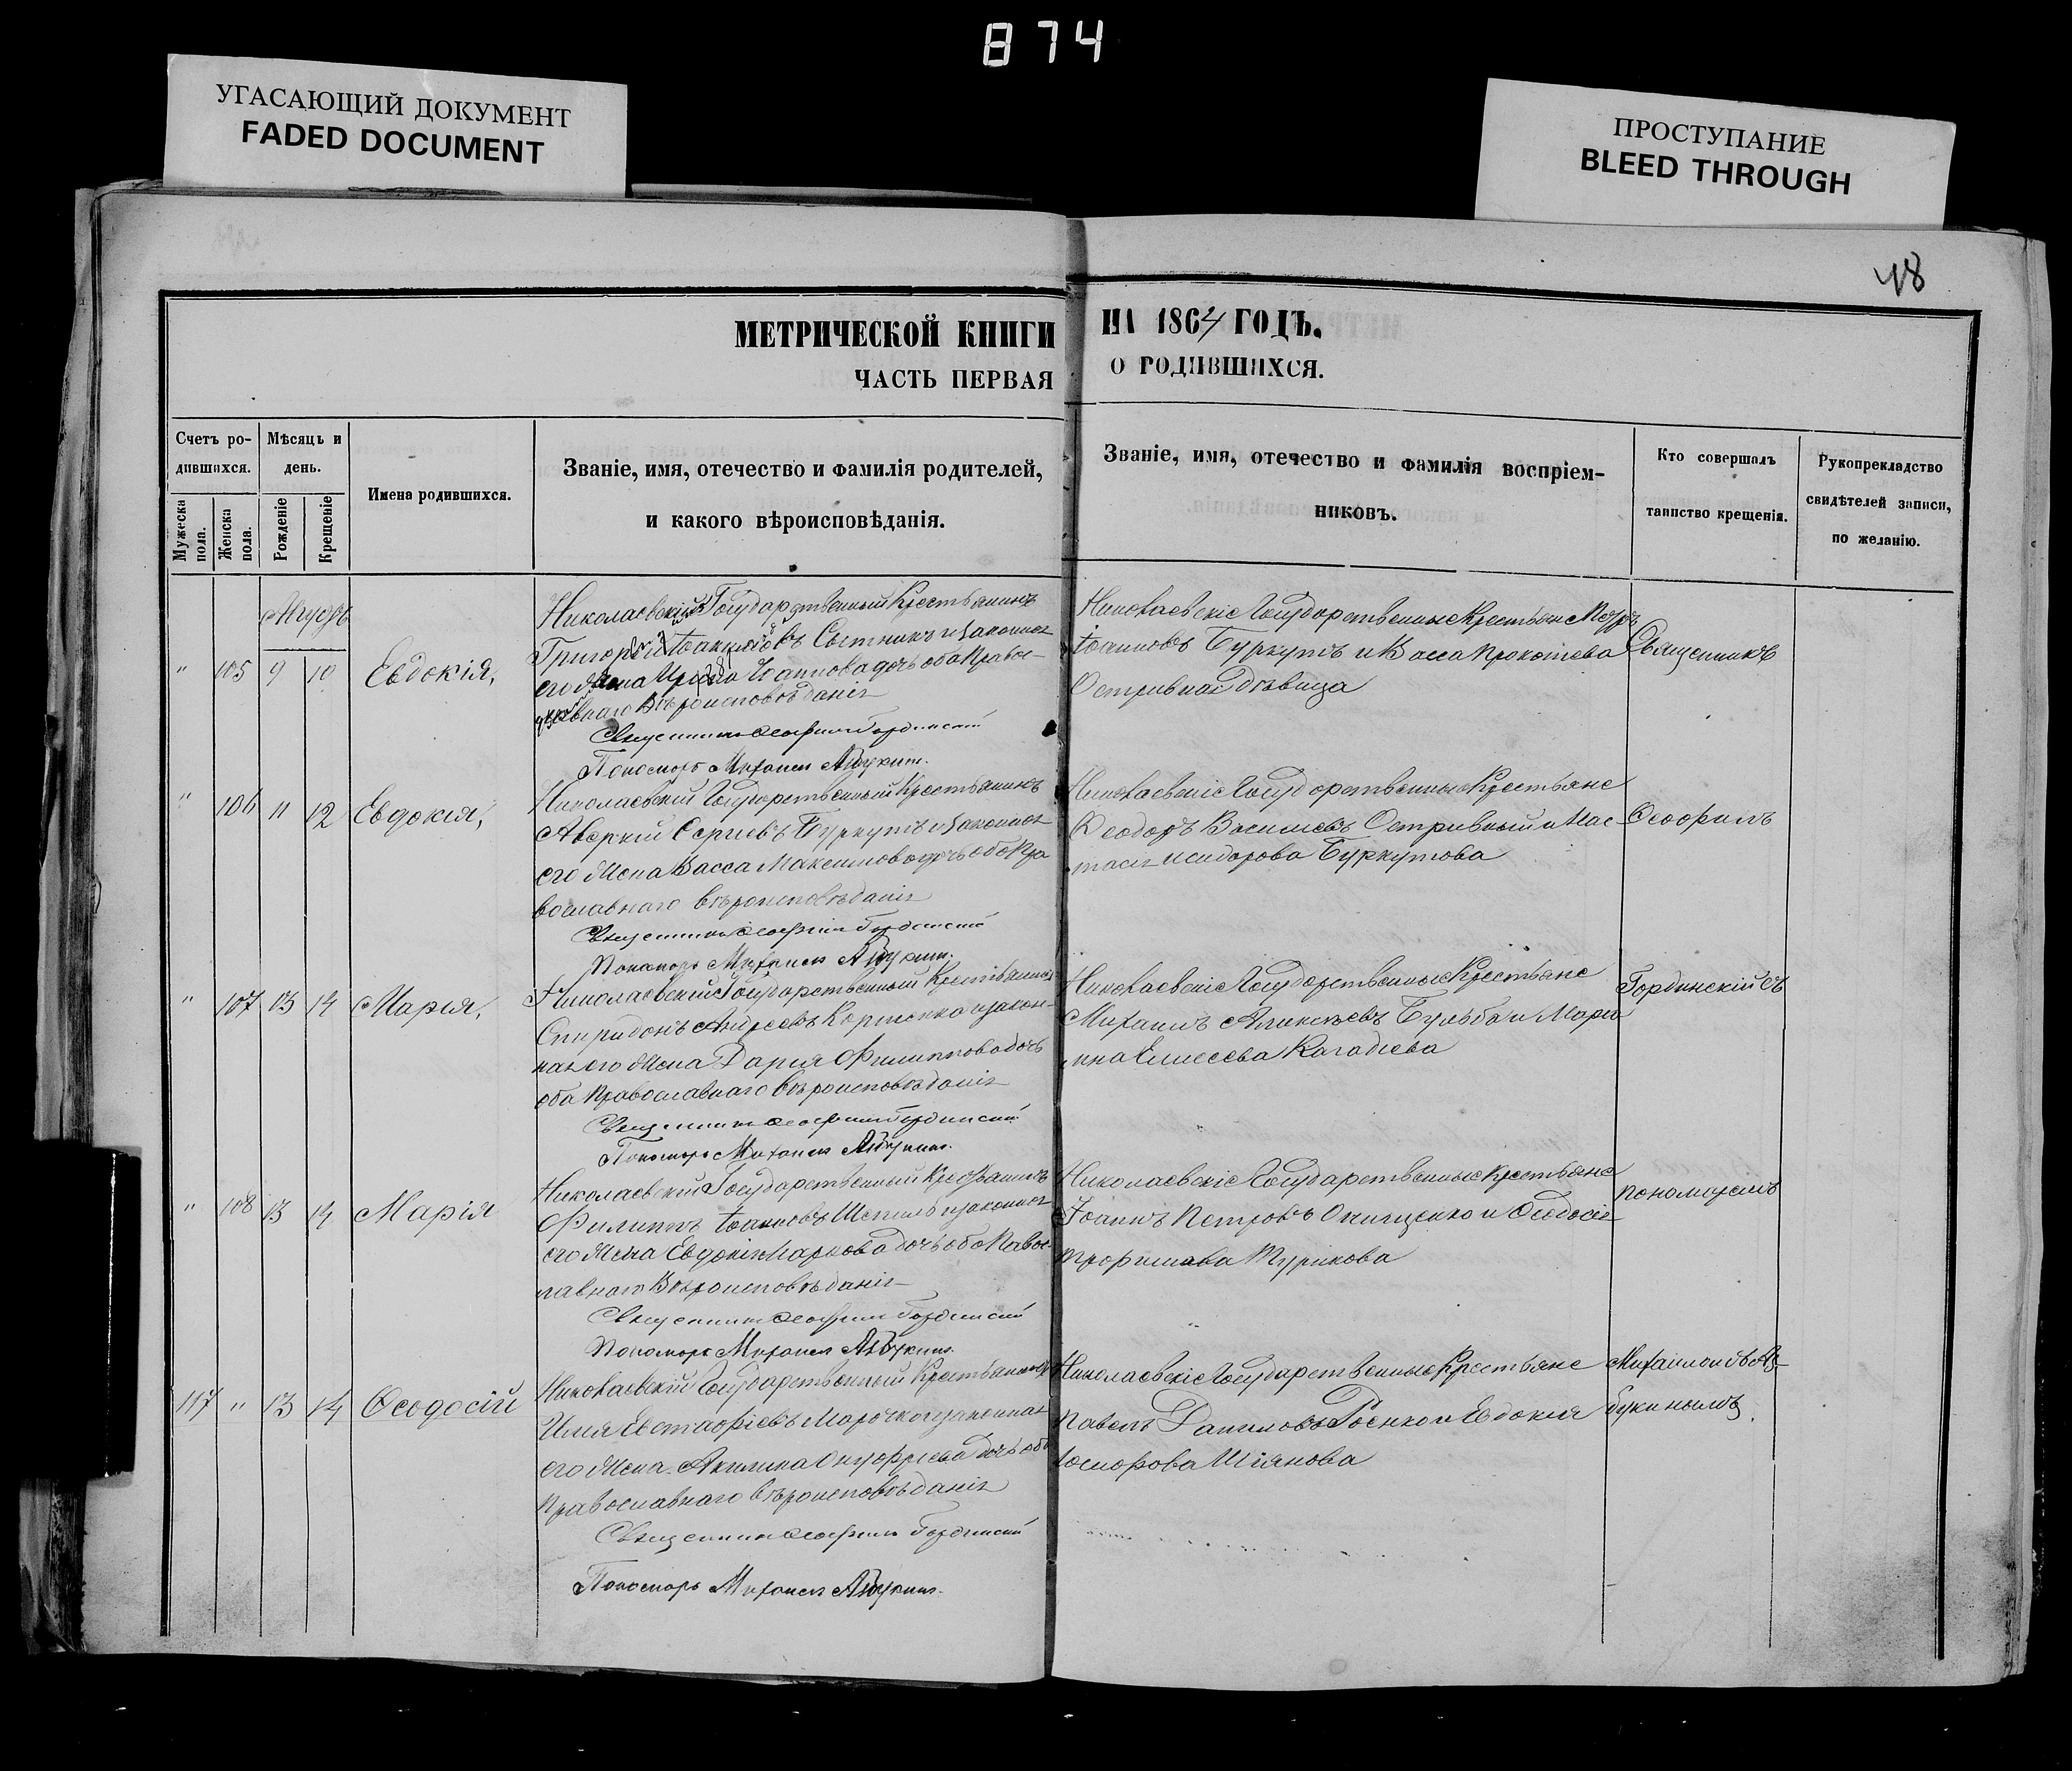 874
УГАСАЮЩИЙ ДОКУМЕНТ
FADED DOCUMENT
ПРОСТУПАНИЕ
BLEED THROUGH
48
МЕТРИЧЕСКОЙ КНИГИ
НА 1864 ГОДЪ.
ЧАСТЬ ПЕРВАЯ
О РОДИВШИХСЯ.
Счетъ ро-
дившихся.
Мужеска
пола.
Женска
пола.
Мѣсяць и
день.
Рожденіе
Крещеніе
Имена родившихся.
Званіе, имя, отечество и фамилія родителей,
и какого вѣроисповѣданія.
Званіе, имя, отечество и фамилія воспріем-
никовъ.
Кто совершалъ
таинство крещенія.
Рукоприкладство
свидѣтелей записи,
по желанію.
" 105 9 10 Евдокія,
Николаевскій Государственный Крестьянинъ
Григорій Сытникъ и законная
его жена Іоаннова дочь оба Правос-
лавнаго Вѣроисповѣданія
Священникъ Ѳеофилъ Гординскій
Пономарь Михаилъ Азбукинъ.
Николаевскіе Государственные Крестьяне
Іоанновъ Буркутъ и Васса Прокопіева
Остривная дѣвица
Священникъ
" 106 11 12 Евдокія,
Николаевскій Государственный Крестьянинъ
Аверкій Сергіевъ Буркутъ и законная
его жена Васса Максимова дочь оба Пра
вославнаго вѣроисповѣданія
Священникъ Ѳеофилъ Гординскій
Пономарь Михаилъ Азбукинъ.
Николаевскіе Государственные Крестьяне
Ѳеодоръ Василіевъ Остривный и Нас-
тасія Исидорова Буркутова
Ѳеофилъ
" 107 13 14 Марія,
Николаевскій Государственный Крестьянинъ
Спиридонъ Андреевъ и закон-
ная его жена Дарія Филиппова дочь
оба Православнаго Вѣроисповѣданія
Священникъ Ѳеофилъ Гординскій
Пономарь Михаилъ Азбукинъ.
Николаевскіе Государственные Крестьяне
Михаилъ Алексѣевъ Бульба и Мари
нна Елисеева
Гординскій съ
" 108 13 14 Марія
Николаевскій Государственный
Филиппъ Іоанновъ и законная
его жена Евдокія Маркова дочь оба Павос-
лавнаго Вѣроисповѣданія
Священникъ Ѳеофилъ Гординскій
Пономарь Михаилъ Азбукинъ.
Николаевскіе Государственные Крестьяне
Іоаннъ Петровъ Онищенко и Ѳеодосія
Трофимова Турикова
пономаремъ
117 " 13 14 Ѳеодосій
Николаевскій Государственный Крестьянинъ
Илія Евстафіевъ Марочко и законная
его жена Акилина Онуфріева дочь оба
Православнаго вѣроисповѣданія
Священникъ Ѳеофилъ Гординскій
Пономарь Михаилъ Азбукинъ.
Николаевскіе Государственные Крестьяне
Павелъ Даниловъ Роенко и Евдокія
Шіянова
Михаиломъ Аз-
букинымъ.